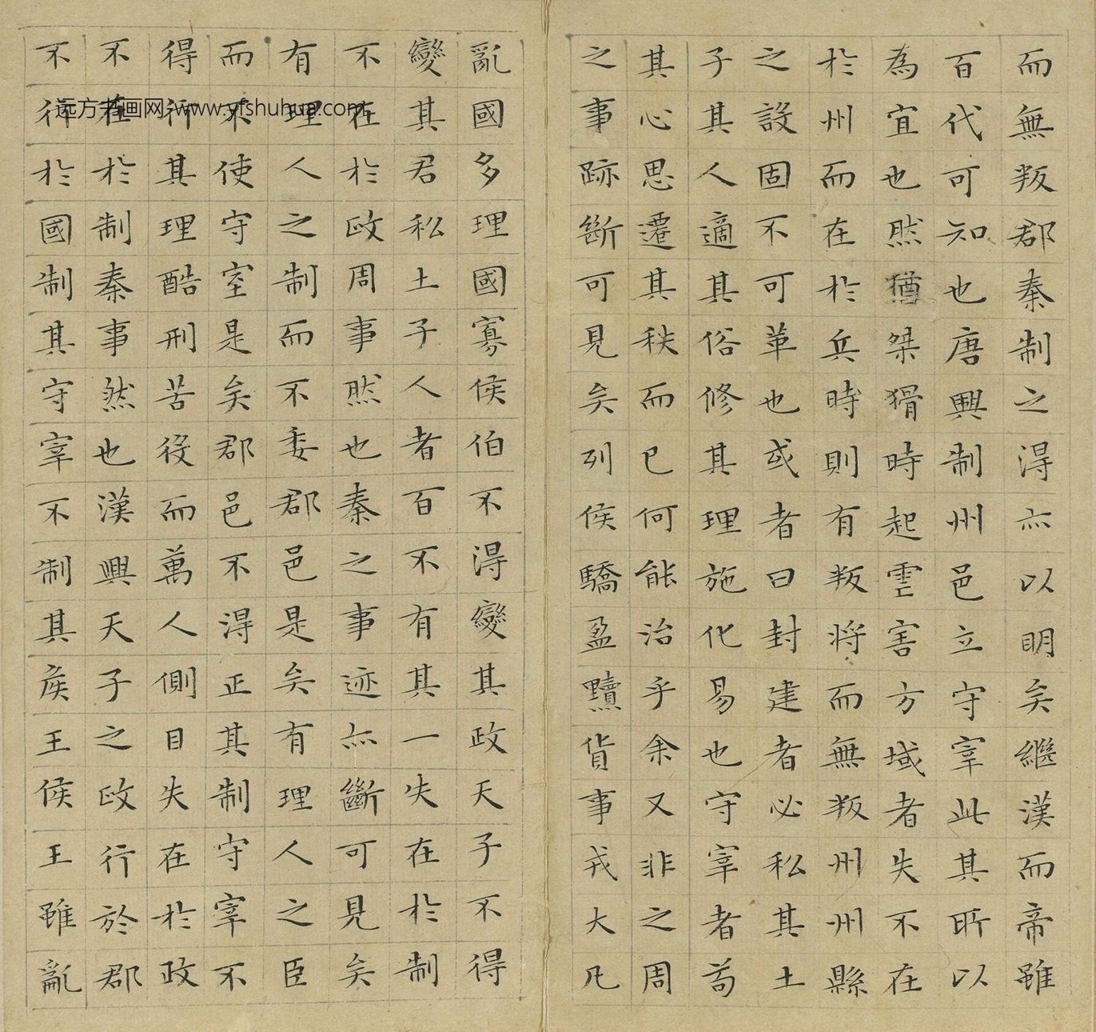 而無叛郡秦制之得亦以明矣繼漢而帝雖
百代可知也唐興制州邑立守宰此其所以
為宜也然猶桀猾時起雲害方域者失不在
於州而在於兵時則有叛將而無叛州州縣
之設固不可革也或者曰封建者必私其土
子其人適其俗修其理施化易也守宰者苟
其心思遷其秩而已何能治乎余又非之周
之事跡斷可見矣列侯驕盈黷貨事戎大凡
亂國多理國寡侯伯不得變其政天子不得
變其君私土子人者百不有其一失在於制
不在於政周事然也秦之事迹亦斷可見矣
有理人之制而不委郡邑是矣有理人之臣
而不使守宰是矣郡邑不得正其制守宰不
得行其理酷刑苦役而萬人側目失在於政
不在於制秦事然也漢興天子之政行於郡
不行於國制其守宰不制其侯王侯王雖亂
远方书画网:www.yfshuhua.com